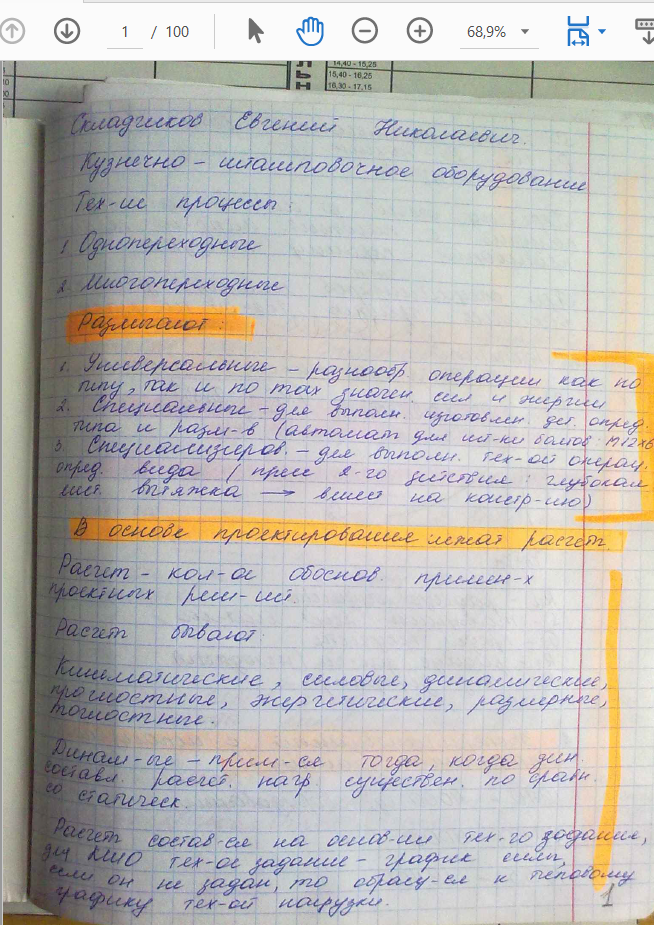 1 / 100 68,9%
14,40 - 15,25
15,40 - 16,25
16,30 - 17,15
Складчиков Евгений Николаевич.
Кузнечно - штамповочное оборудование
Тех-ие процессы:
1. Однопереходные
2. Многопереходные
Различают:
1. Универсальные - разнообр. операции как по
типу, так и по max значен. сил и энергии
2. Специальные - для выполн. изготовлен. дет. опред.
типа и разм-в (автомат для шт-ки болтов М12х6
3. Специализиров. - для выполн. тех-ой операц.
опред. вида (пресс 2-го действия: глубокая
лист. вытяжка → влият на констр-ию)
В основе проектирования лежат расчеты.
Расчет - кол-ое обоснов. примен-х
проектных реш-ий.
Расчеты бывают:
Кинематические, силовые, динамические,
прочностные, энергетические, размерные,
точностные.
Динам-ые - прим-ся тогда, когда дин.
составл. расчет. нагр. существен. по сравн.
со статическ.
Расчеты состав-ся на основ-ии тех-го задания,
для КШО тех-ое задание - график силы,
если он не задан, то обращ-ся к типовому
графику тех-ой нагрузки.
1